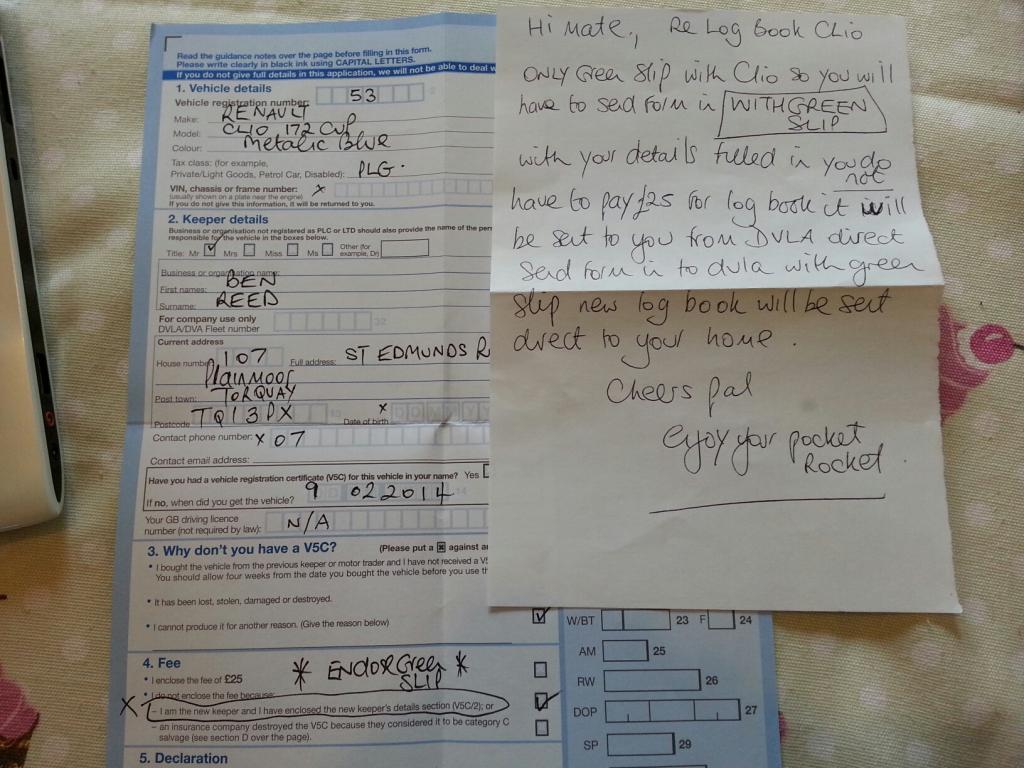 Read the guidance notes over the page before filling in this form.
Please write clearly in black ink using CAPITAL LETTERS.
If you do not give full details in this application, we will not be able to deal w
1. Vehicle details
Vehicle registration number: 53
Make: RENAULT
Model: CLIO 172 CUP
Colour: Metalic Blue
Tax class: (for example,
Private/Light Goods, Petrol Car, Disabled): PLG.
VIN, chassis or frame number: X
(usually shown on a plate near the engine)
If you do not give this information, it will be returned to you.
2. Keeper details
Business or organisation not registered as PLC or LTD should also provide the name of the per
responsible for the vehicle in the boxes below.
Title: Mr Mrs Miss Ms Other (for
example, Dr)
Business or organisation name:
First names: BEN
Surname: REED
For company use only
DVLA/DVA Fleet number 32
Current address
House number 107 Full address: ST EDMUNDS R
Plainmoor
Post town: TORQUAY
Postcode TQ1 3PX Date of birth X D D M Y Y
Contact phone number: X 07
Contact email address:
Have you had a vehicle registration certificate (V5C) for this vehicle in your name? Yes
If no, when did you get the vehicle? 9 02 2014
Your GB driving licence
number (not required by law): N/A
3. Why don't you have a V5C? (Please put a x against a
• I bought the vehicle from the previous keeper or motor trader and I have not received a V5
You should allow four weeks from the date you bought the vehicle before you use th
• It has been lost, stolen, damaged or destroyed.
• I cannot produce it for another reason. (Give the reason below)
4. Fee * ENDOR Green *
SLIP
• I enclose the fee of £25
• I do not enclose the fee because:
X – I am the new keeper and I have enclosed the new keeper's details section (V5C/2); or
– an insurance company destroyed the V5C because they considered it to be category C
salvage (see section D over the page).
5. Declaration
W/BT 23 F 24
AM 25
RW 26
DOP 27
SP 29
Hi Mate, Re Log Book Clio
ONLY Green Slip with Clio so you will
have to send form in WITH GREEN
SLIP
with your details filled in you do
not
have to pay £25 for log book it will
be sent to you from DVLA direct
Send form in to dvla with green
slip new log book will be sent
direct to your home.
Cheers pal
enjoy your pocket
Rocket.